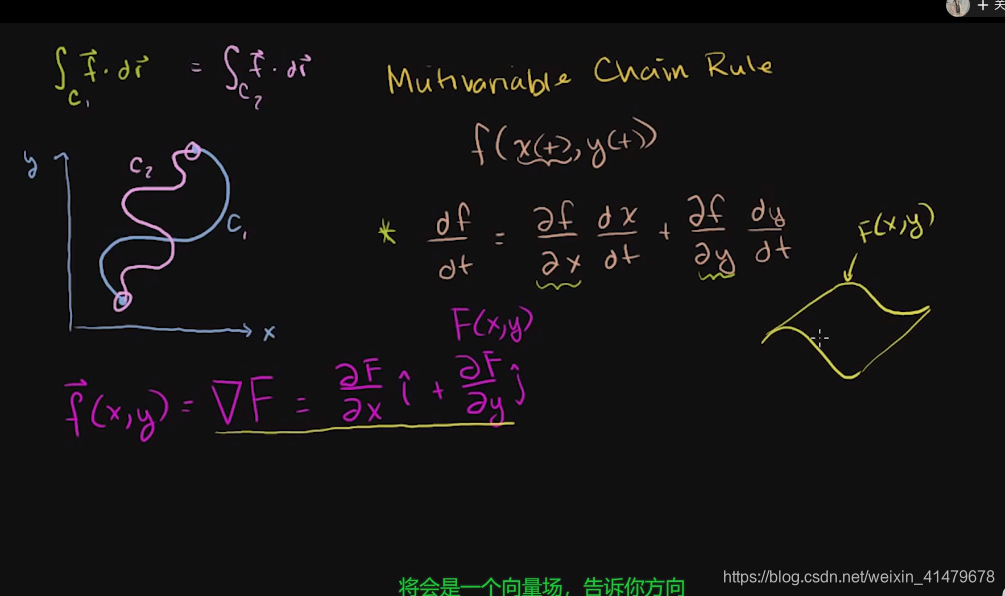 + 关
∫_{C₁} f⃗ · dr⃗ = ∫_{C₂} f⃗ · dr⃗
Mutivariable Chain Rule
f(x(t), y(t))
y
C₂
C₁
x
* df/dt = ∂f/∂x dx/dt + ∂f/∂y dy/dt
F(x,y)
F(x,y)
f⃗(x,y) = ∇F = ∂F/∂x î + ∂F/∂y ĵ
将会是一个向量场，告诉你方向
https://blog.csdn.net/weixin_41479678